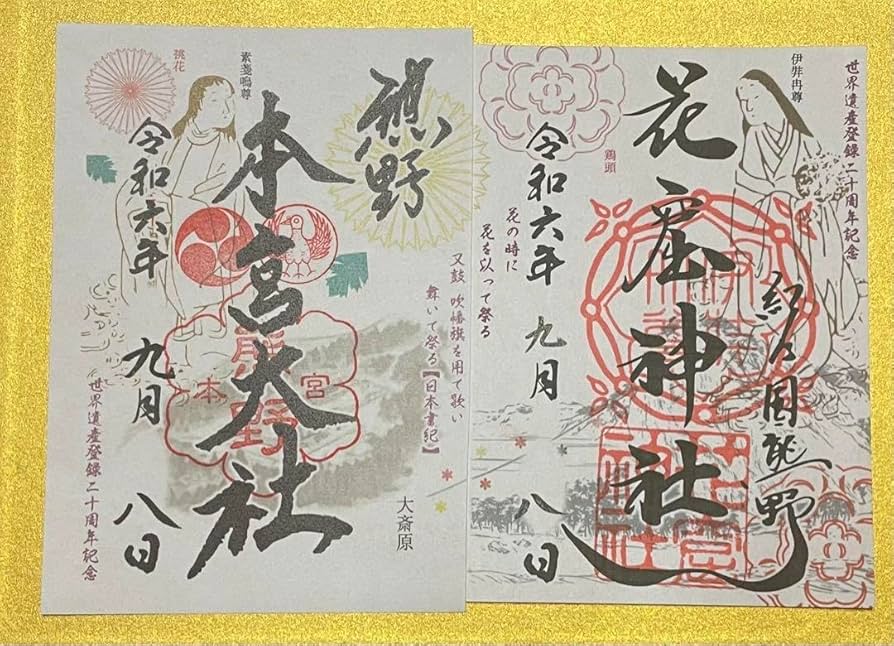 世界遺産登録二十周年記念
伊弉冉尊
花窟神社
紀の国熊野
鶏頭
花の時に
花を以って祭る
令和六年 九月 八日
熊野
本宮大社
素戔嗚尊
桃花
令和六年 九月 八日
又鼓 吹幡旗を用て歌い
舞いて祭る【日本書紀】
大斎原
熊野
本宮
世界遺産登録二十周年記念